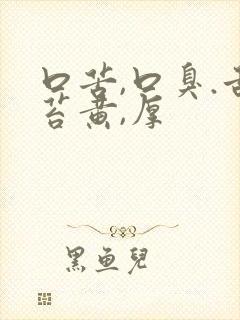 口苦,口臭.舌
苔黄,厚
黑鱼儿